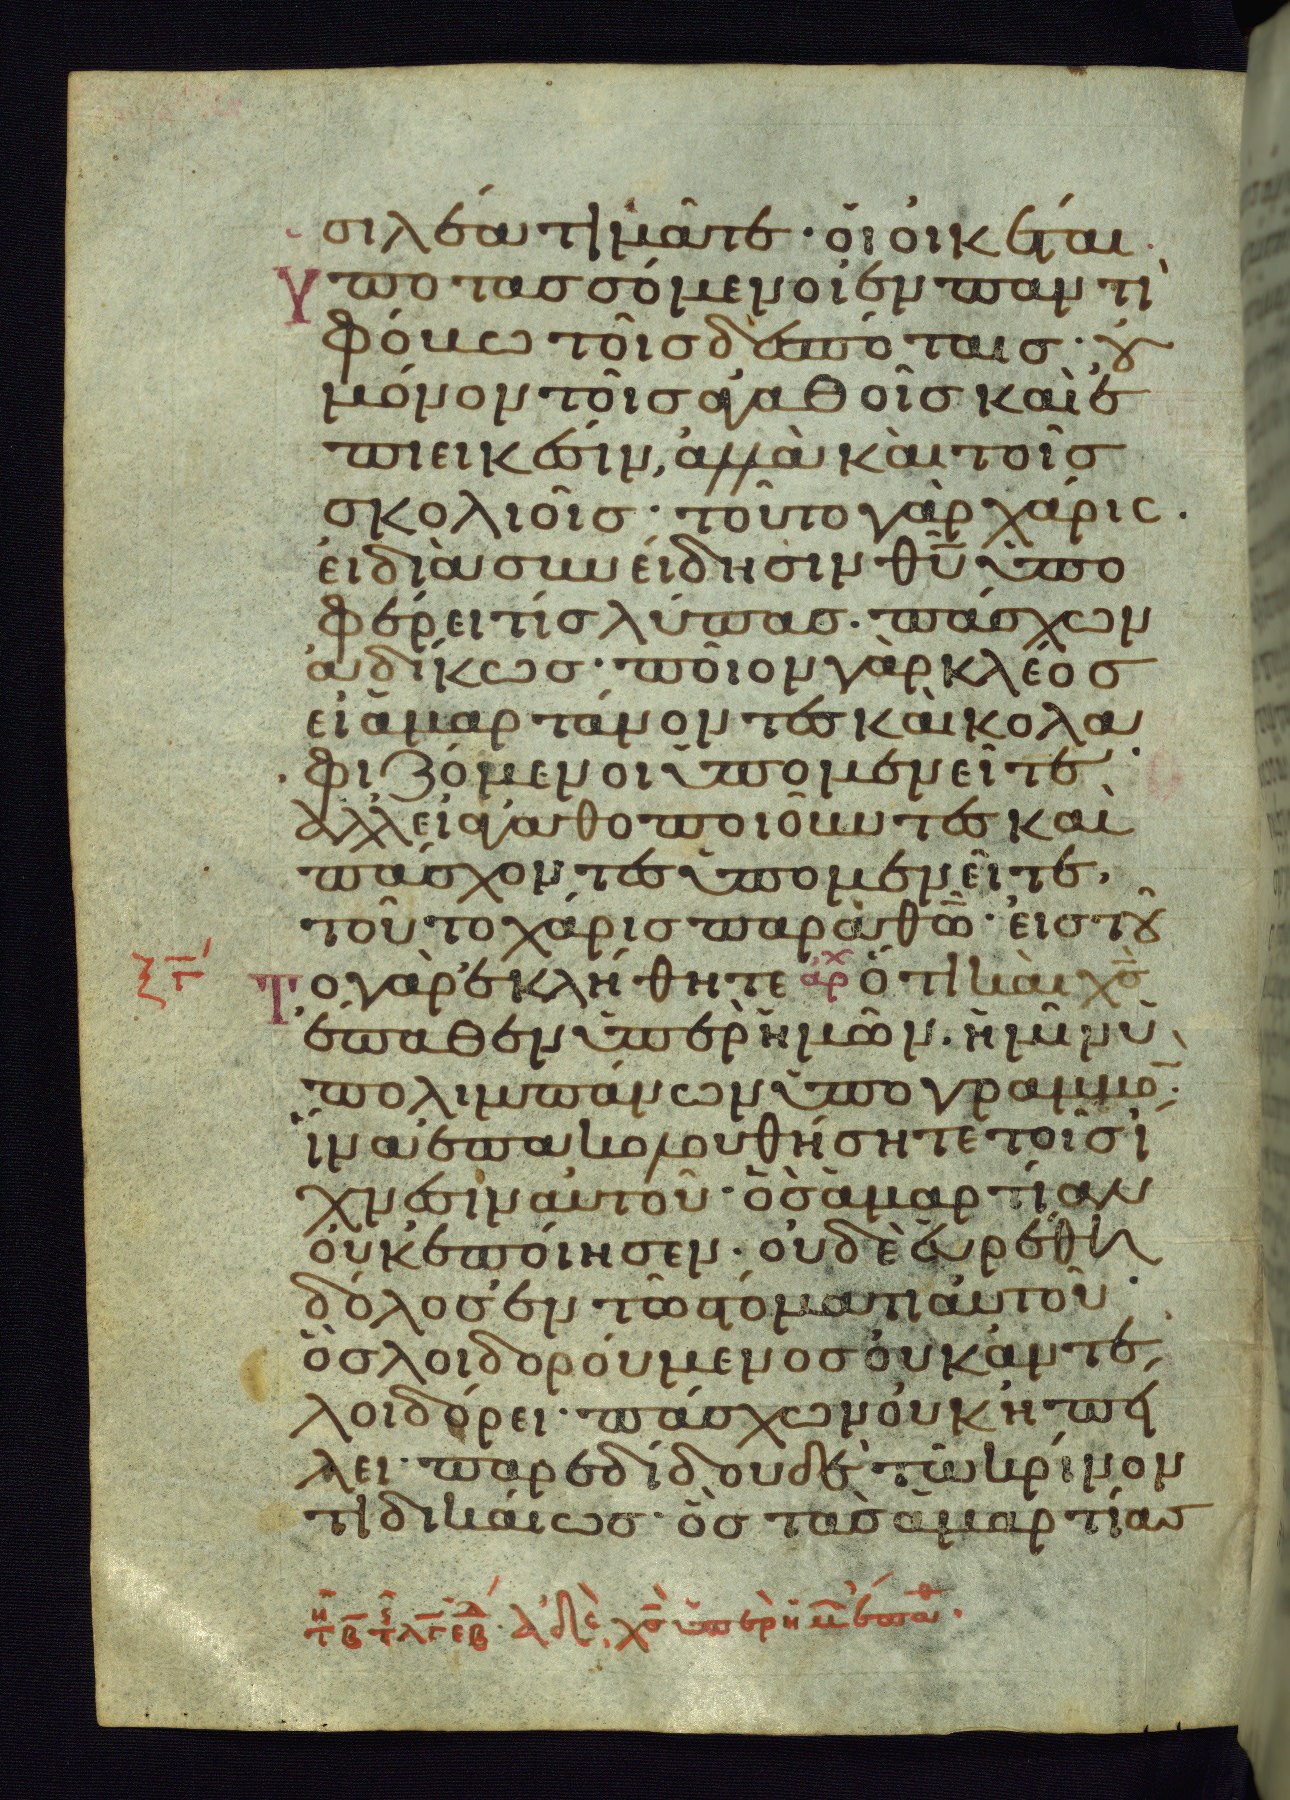 σιλέα τιμᾶτε· οἱ οἰκέται
Ὑποτασσόμενοι ἐν παντὶ
φόβω τοῖς δεσπόταις· οὐ
μόνον τοῖς ἀγαθοῖς καὶ ἐ
πιεικέσιν, ἀλλὰ καὶ τοῖς
σκολιοῖς· τοῦτο γὰρ χάρις.
εἰ διὰ συνείδησιν θῦ ὑπο
φέρει τίς λύπας· πάσχων
ἀδίκως· ποῖον γὰρ κλέος
εἰ ἁμαρτάνοντες καὶ κολα
φιζόμενοι ὑπομενεῖτε·
ἀλλ' εἰ ἀγαθοποιοῦντες καὶ
πάσχοντες ὑπομενεῖτε,
τοῦτο χάρις παρὰ θῶ· εἰς τοῦ
ξγ
Το γὰρ ἐκλήθητε ἀρχ ὅτι καὶ χς
ἔπαθεν ὑπὲρ ἡμῶν· ἡμῖν ὑ
πολιμπάνων ὑπογραμμὸ
ἵνα ἐπακολουθήσητε τοῖς ἴ
χνεσιν αὐτοῦ· ὃς ἁμαρτίαν
οὐκ ἐποίησεν· οὐδὲ εὑρέθη
δόλος ἐν τῶ στόματι αὐτοῦ·
ὃς λοιδορούμενος οὐκ ἀντε
λοιδόρει· πάσχων οὐκ ἠπεί
λει· παρεδίδου δὲ τῶ κρίνον
τι δικαίως· ὃς τὰς ἁμαρτίας
ἀδε, χς ὑπὲρ ἡμ ἐπαθ.